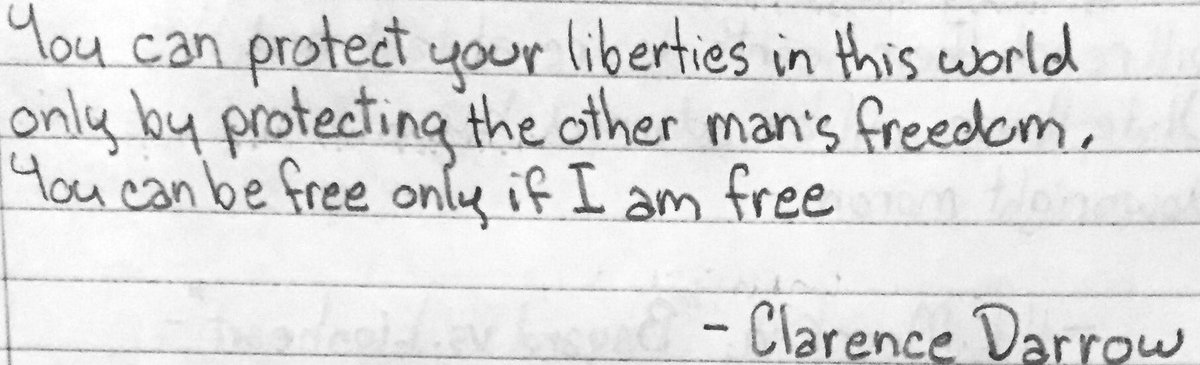 You can protect your liberties in this world
only by protecting the other man's freedom.
You can be free only if I am free
- Clarence Darrow